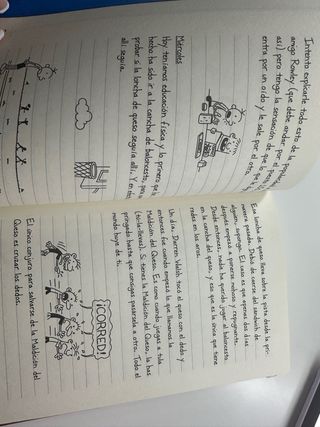 Intento explicarle todo esto de la popula
amigo Rowley (que debe andar por el puesto
así) pero tengo la sensación de que lo que
entra por un oído y le sale por el otra.
Miércoles
Hoy teníamos educación física y lo primero que he
hecho ha sido ir a la cancha de baloncesto, para
probar si la loncha de queso seguía allí. Y en efec
allí seguía.
Esa loncha de queso lleva sobre la pista desde la pri-
mavera pasada. Acababa de caerse del sandwich de
alguien, supongo. El caso es que apenas dos días
después empezó a ponerse mohoso y repugnante.
Desde entonces, nadie ha querido jugar al baloncesto
en la cancha del queso, y eso que es la única que tiene
redes en los aros.
Un día, Darren Walsh tocó el queso con el dedo y
entonces fue cuando empezó eso que llamamos la
Maldición del Queso. Es como cuando juegas a tula
(tú-la-llevas). Si tienes la Maldición del Queso, la has
pringado hasta que consigas pasársela a otro. Todo el
mundo huye de ti.
¡CORRED!
El único conjuro para salvarse de la Maldición del
Queso es cruzar los dedos.